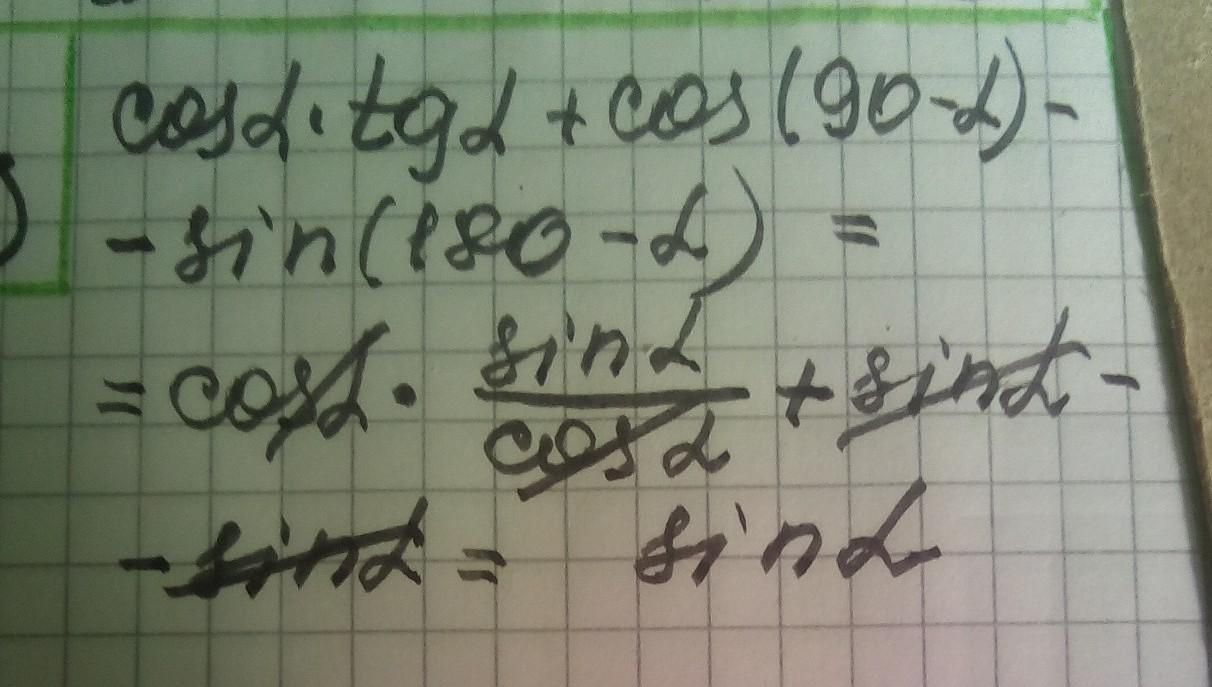 cosα · tgα + cos(90-α) -
- sin(180 - α) =
= cosα · sinα/cosα + sinα -
- sinα = sinα